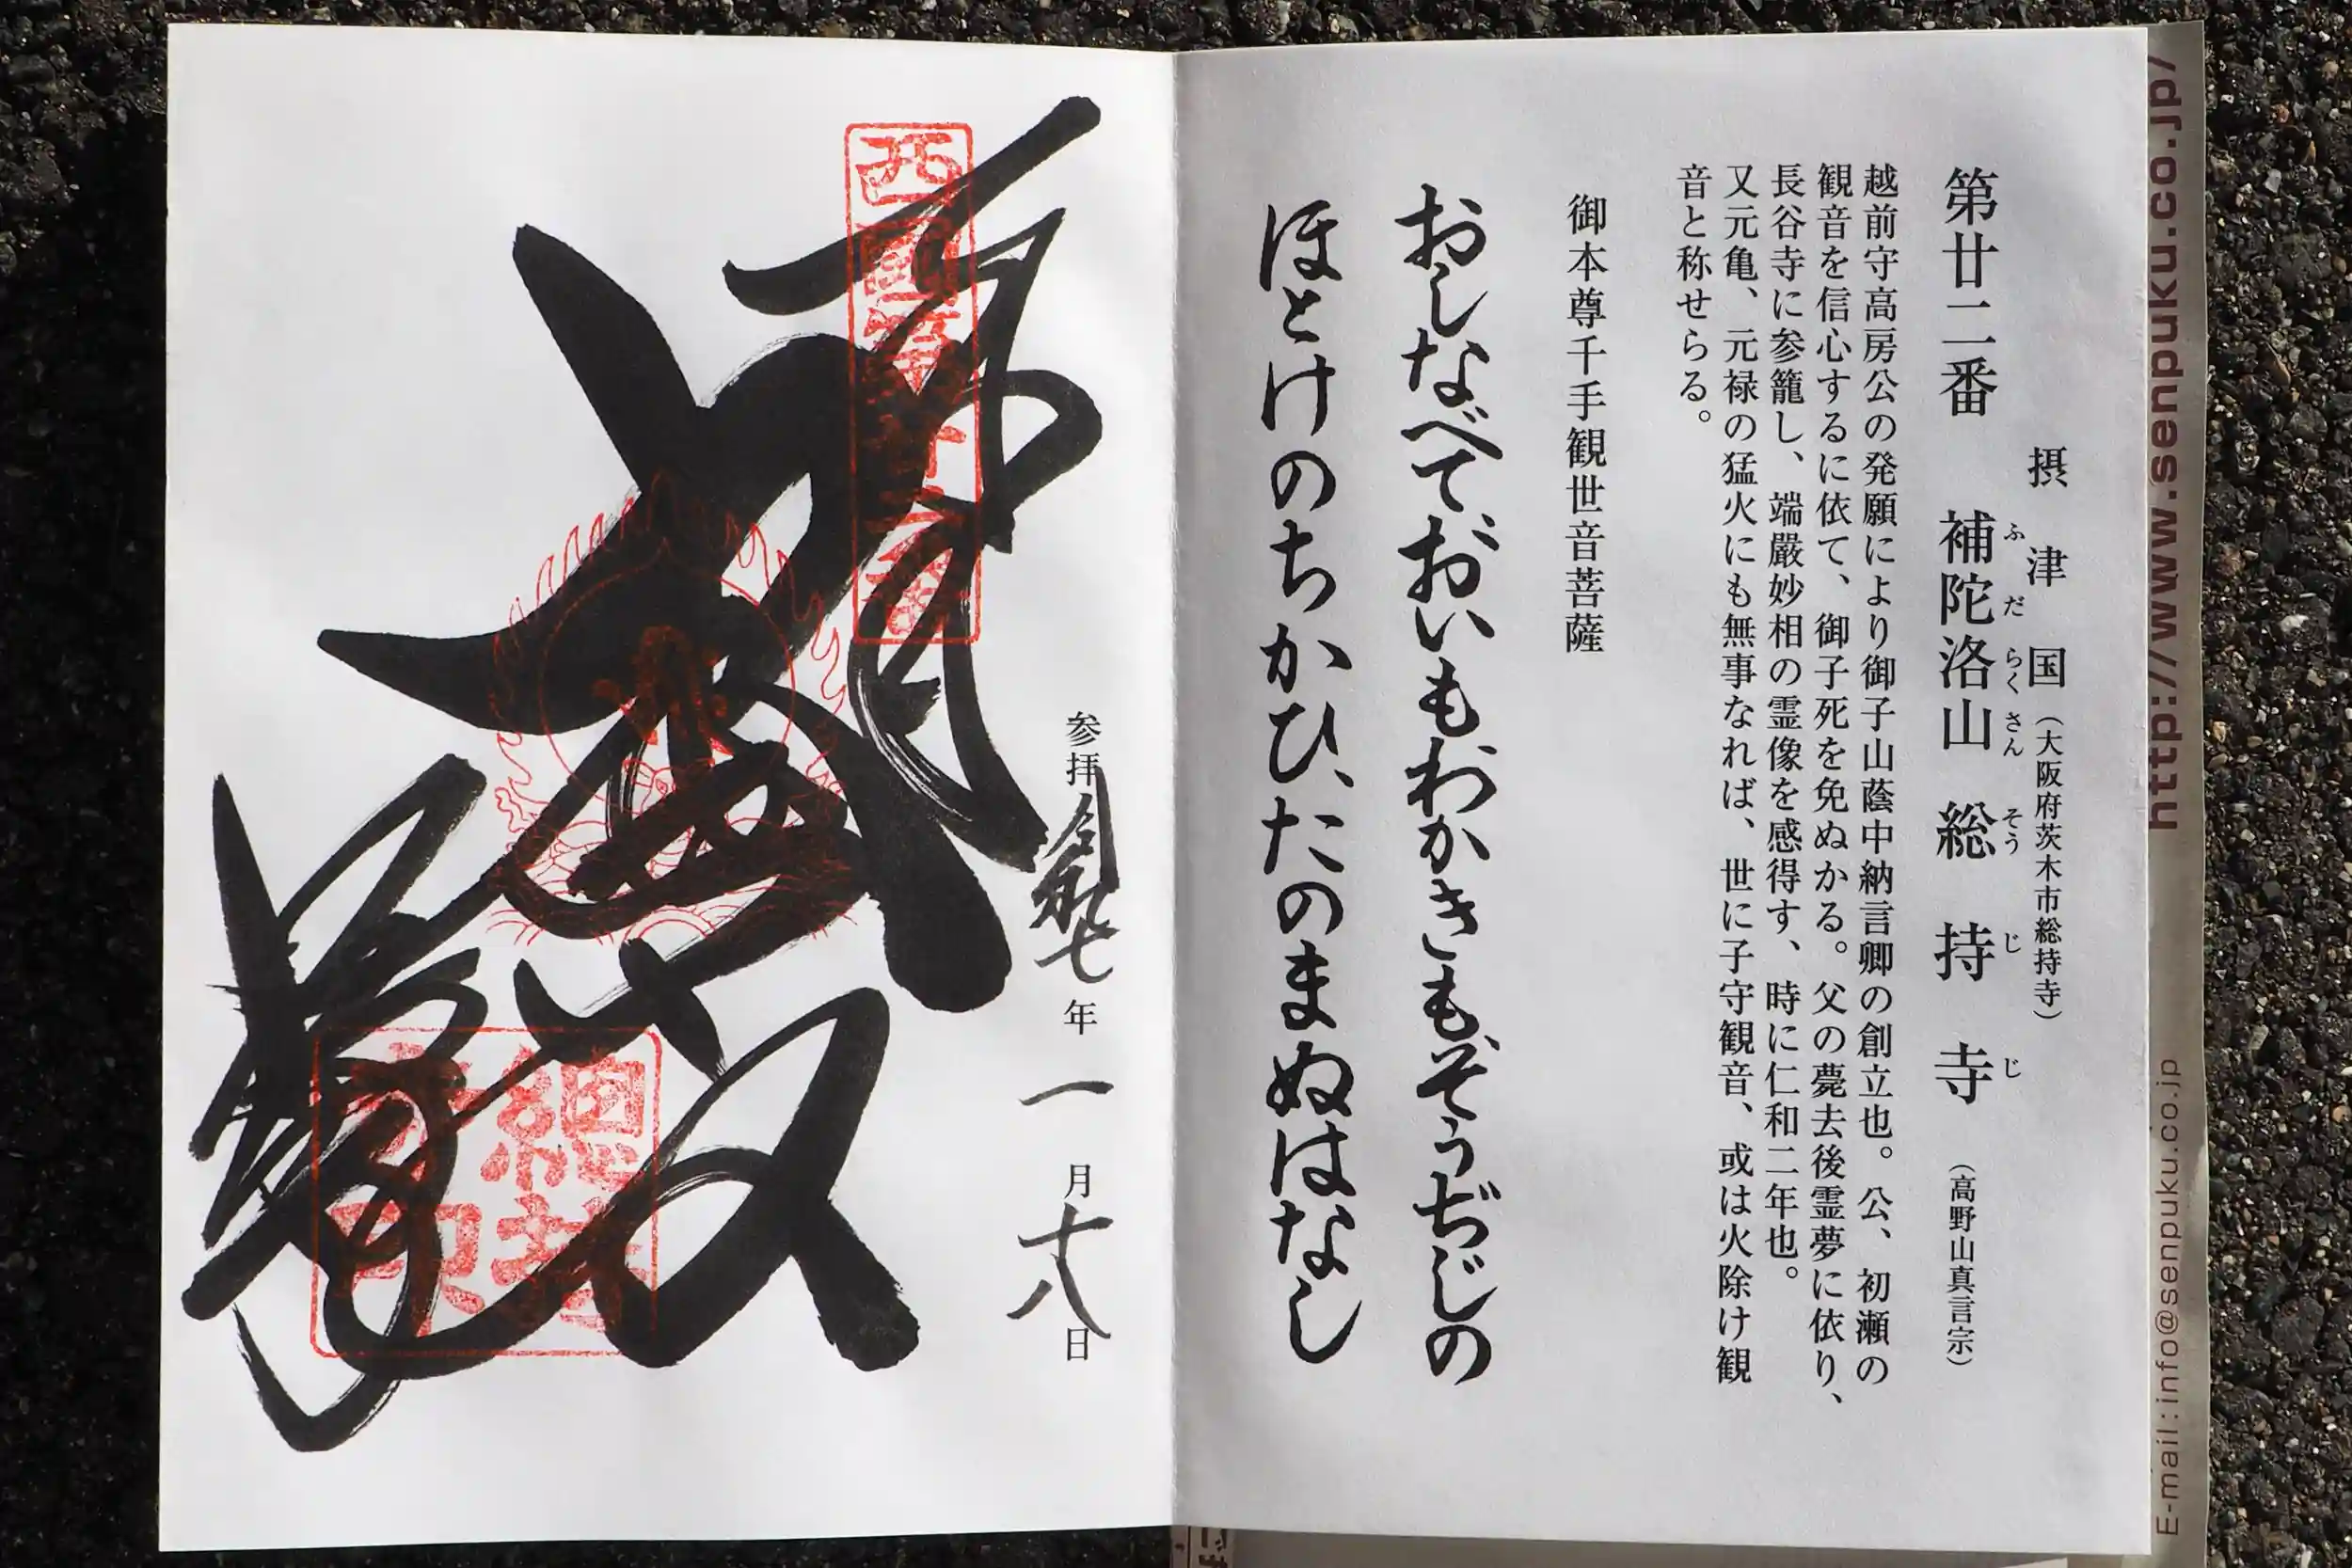 摂津国（大阪府茨木市総持寺）
第廿二番 補陀洛山 総持寺（高野山真言宗）
ふだらくさん そうじじ
越前守高房公の発願により御子山蔭中納言卿の創立也。公、初瀬の
観音を信心するに依て、御子死を免ぬかる。父の薨去後霊夢に依り、
長谷寺に参籠し、端嚴妙相の霊像を感得す、時に仁和二年也。
又元亀、元禄の猛火にも無事なれば、世に子守観音、或は火除け観
音と称せらる。
御本尊千手観世音菩薩
おしなべておいもわかきもそうぢじの
ほとけのちかひ、たのまぬはなし
参拝 令和七年 一月十八日
西國第廿二番
總持寺印
http://www.senpuku.co.jp/
E-mail:info@senpuku.co.jp